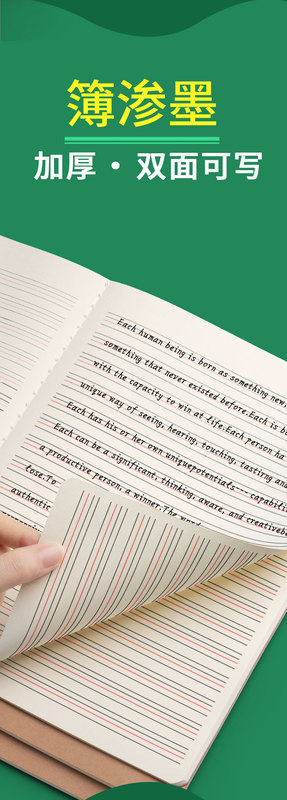 簿渗墨
加厚·双面可写
Each human being is born as something new,
something that never existed before.Each is b
with the capacity to win at life.Each person ha
unique way of seeing, hearing, touching, tasting and
Each has his or her own uniquepotentials---capabili
Each can be a significant, thinking, aware, and creativebe
a productive person, a winner.The word
lose.To
authentic